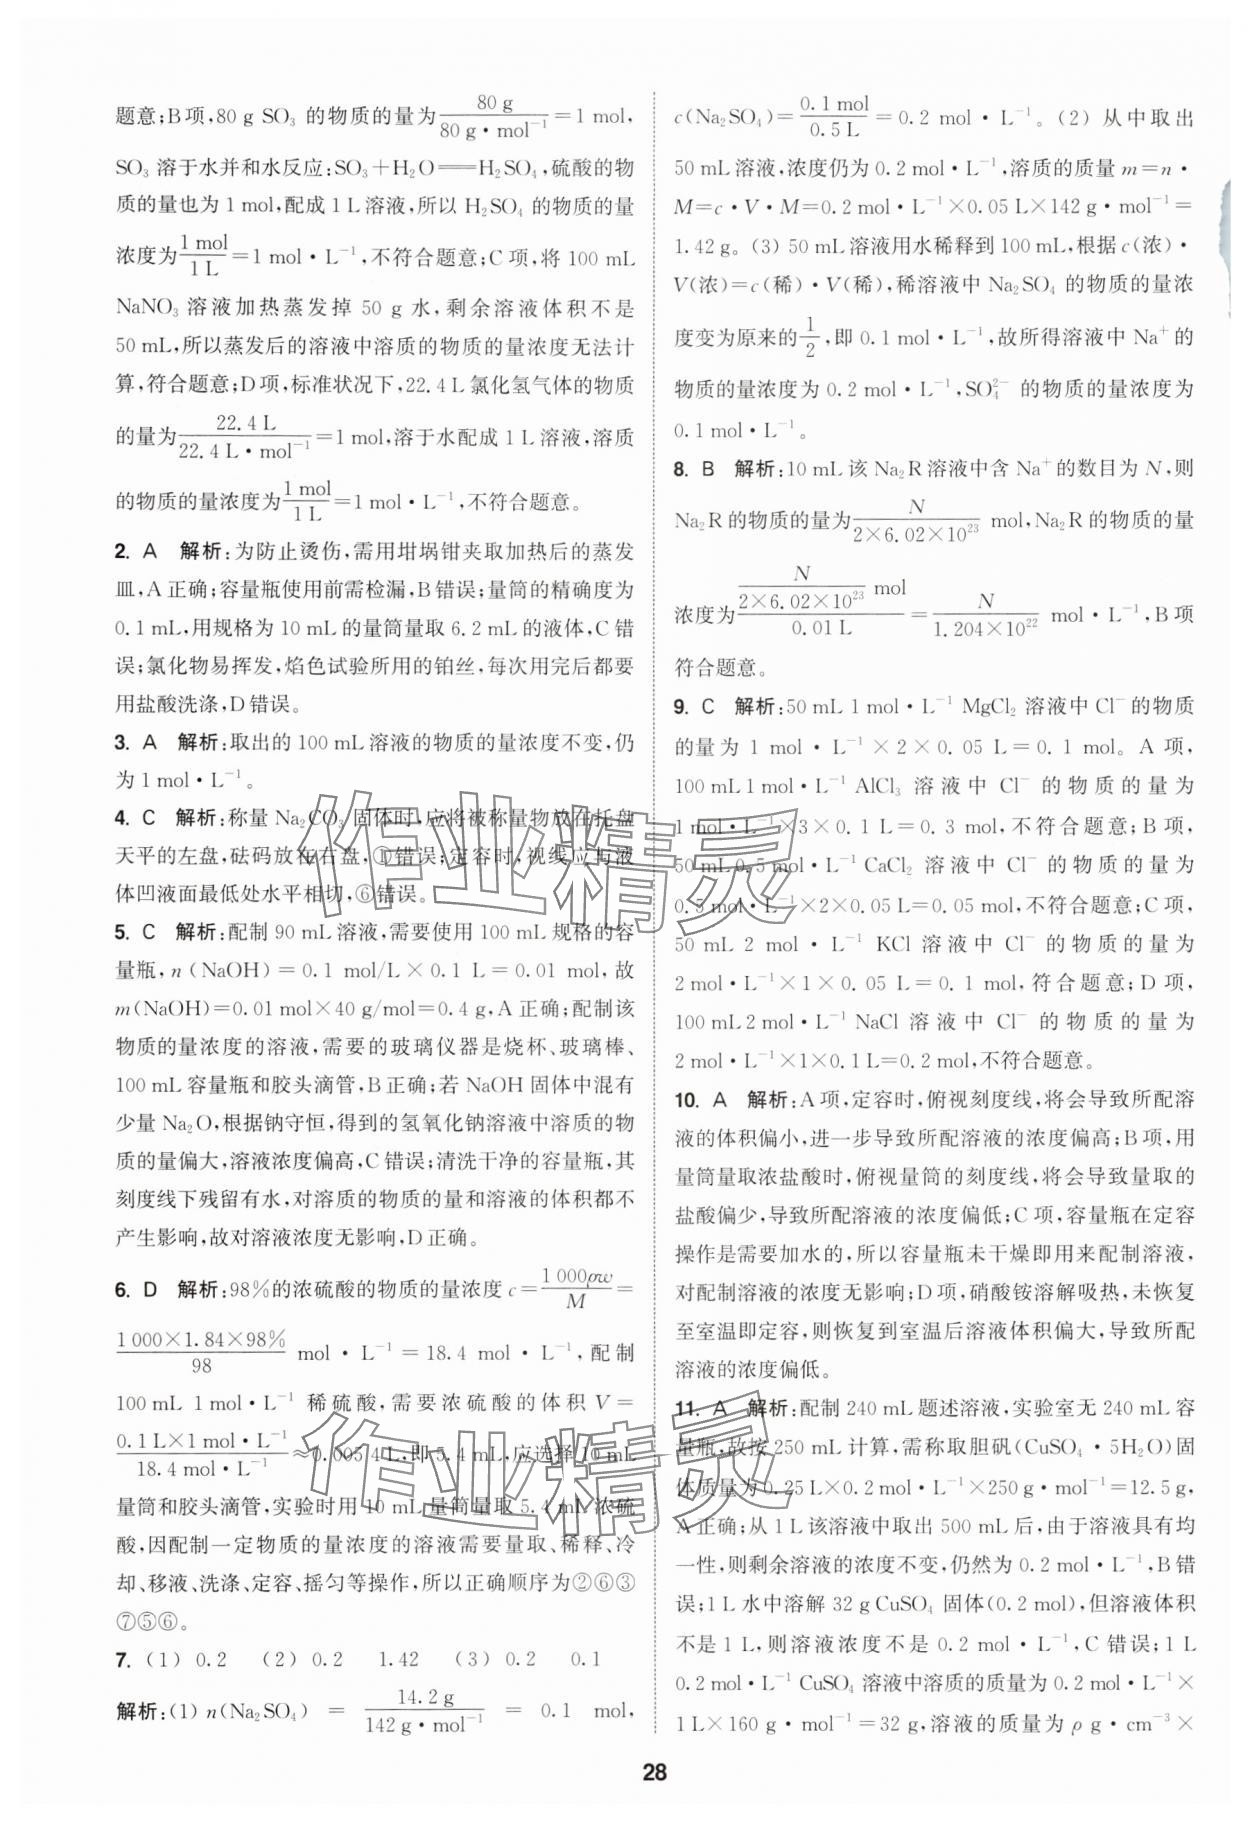 题意;B项,80 g SO₃ 的物质的量为 80 g/80 g·mol⁻¹=1 mol,
SO₃ 溶于水并和水反应:SO₃+H₂O══H₂SO₄,硫酸的物
质的量也为 1 mol,配成 1 L 溶液,所以 H₂SO₄ 的物质的量
浓度为 1 mol/1 L=1 mol·L⁻¹,不符合题意;C项,将 100 mL
NaNO₃ 溶液加热蒸发掉 50 g 水,剩余溶液体积不是
50 mL,所以蒸发后的溶液中溶质的物质的量浓度无法计
算,符合题意;D项,标准状况下,22.4 L 氯化氢气体的物质
的量为 22.4 L/22.4 L·mol⁻¹=1 mol,溶于水配成 1 L 溶液,溶质
的物质的量浓度为 1 mol/1 L=1 mol·L⁻¹,不符合题意。
2. A 解析:为防止烫伤,需用坩埚钳夹取加热后的蒸发
皿,A正确;容量瓶使用前需检漏,B错误;量筒的精确度为
0.1 mL,用规格为 10 mL 的量筒量取 6.2 mL 的液体,C错
误;氯化物易挥发,焰色试验所用的铂丝,每次用完后都要
用盐酸洗涤,D错误。
3. A 解析:取出的 100 mL 溶液的物质的量浓度不变,仍
为 1 mol·L⁻¹。
4. C 解析:称量 Na₂CO₃ 固体时,应将被称量物放在托盘
天平的左盘,砝码放在右盘,①错误;定容时,视线应与液
体凹液面最低处水平相切,⑥错误。
5. C 解析:配制 90 mL 溶液,需要使用 100 mL 规格的容
量瓶,n(NaOH)=0.1 mol/L×0.1 L=0.01 mol,故
m(NaOH)=0.01 mol×40 g/mol=0.4 g,A正确;配制该
物质的量浓度的溶液,需要的玻璃仪器是烧杯、玻璃棒、
100 mL 容量瓶和胶头滴管,B正确;若 NaOH 固体中混有
少量 Na₂O,根据钠守恒,得到的氢氧化钠溶液中溶质的物
质的量偏大,溶液浓度偏高,C错误;清洗干净的容量瓶,其
刻度线下残留有水,对溶质的物质的量和溶液的体积都不
产生影响,故对溶液浓度无影响,D正确。
6. D 解析:98%的浓硫酸的物质的量浓度 c=1 000ρw/M=
1 000×1.84×98%/98 mol·L⁻¹=18.4 mol·L⁻¹,配制
100 mL 1 mol·L⁻¹ 稀硫酸,需要浓硫酸的体积 V=
0.1 L×1 mol·L⁻¹/18.4 mol·L⁻¹≈0.005 4 L,即 5.4 mL,应选择 10 mL
量筒和胶头滴管,实验时用 10 mL 量筒量取 5.4 mL 浓硫
酸,因配制一定物质的量浓度的溶液需要量取、稀释、冷
却、移液、洗涤、定容、摇匀等操作,所以正确顺序为②⑥③
⑦⑤⑥。
7. (1) 0.2 (2) 0.2 1.42 (3) 0.2 0.1
解析:(1) n(Na₂SO₄)=14.2 g/142 g·mol⁻¹=0.1 mol,
c(Na₂SO₄)=0.1 mol/0.5 L=0.2 mol·L⁻¹。(2) 从中取出
50 mL 溶液,浓度仍为 0.2 mol·L⁻¹,溶质的质量 m=n·
M=c·V·M=0.2 mol·L⁻¹×0.05 L×142 g·mol⁻¹=
1.42 g。(3) 50 mL 溶液用水稀释到 100 mL,根据 c(浓)·
V(浓)=c(稀)·V(稀),稀溶液中 Na₂SO₄ 的物质的量浓
度变为原来的 1/2,即 0.1 mol·L⁻¹,故所得溶液中 Na⁺ 的
物质的量浓度为 0.2 mol·L⁻¹,SO₄²⁻ 的物质的量浓度为
0.1 mol·L⁻¹。
8. B 解析:10 mL 该 Na₂R 溶液中含 Na⁺ 的数目为 N,则
Na₂R 的物质的量为 N/2×6.02×10²³ mol,Na₂R 的物质的量
浓度为 (N/2×6.02×10²³ mol)/0.01 L=N/1.204×10²² mol·L⁻¹,B项
符合题意。
9. C 解析:50 mL 1 mol·L⁻¹ MgCl₂ 溶液中 Cl⁻ 的物质
的量为 1 mol·L⁻¹×2×0.05 L=0.1 mol。A项,
100 mL1 mol·L⁻¹ AlCl₃ 溶液中 Cl⁻ 的物质的量为
1 mol·L⁻¹×3×0.1 L=0.3 mol,不符合题意;B项,
50 mL 0.5 mol·L⁻¹ CaCl₂ 溶液中 Cl⁻ 的物质的量为
0.5 mol·L⁻¹×2×0.05 L=0.05 mol,不符合题意;C项,
50 mL 2 mol·L⁻¹ KCl 溶液中 Cl⁻ 的物质的量为
2 mol·L⁻¹×1×0.05 L=0.1 mol,符合题意;D项,
100 mL2 mol·L⁻¹ NaCl 溶液中 Cl⁻ 的物质的量为
2 mol·L⁻¹×1×0.1 L=0.2 mol,不符合题意。
10. A 解析:A项,定容时,俯视刻度线,将会导致所配溶
液的体积偏小,进一步导致所配溶液的浓度偏高;B项,用
量筒量取浓盐酸时,俯视量筒的刻度线,将会导致量取的
盐酸偏少,导致所配溶液的浓度偏低;C项,容量瓶在定容
操作是需要加水的,所以容量瓶未干燥即用来配制溶液,
对配制溶液的浓度无影响;D项,硝酸铵溶解吸热,未恢复
至室温即定容,则恢复到室温后溶液体积偏大,导致所配
溶液的浓度偏低。
11. A 解析:配制 240 mL 题述溶液,实验室无 240 mL 容
量瓶,故按 250 mL 计算,需称取胆矾(CuSO₄·5H₂O)固
体质量为 0.25 L×0.2 mol·L⁻¹×250 g·mol⁻¹=12.5 g,
A正确;从 1 L 该溶液中取出 500 mL 后,由于溶液具有均
一性,则剩余溶液的浓度不变,仍然为 0.2 mol·L⁻¹,B错
误;1 L 水中溶解 32 g CuSO₄ 固体(0.2 mol),但溶液体积
不是 1 L,则溶液浓度不是 0.2 mol·L⁻¹,C错误;1 L
0.2 mol·L⁻¹ CuSO₄ 溶液中溶质的质量为 0.2 mol·L⁻¹×
1 L×160 g·mol⁻¹=32 g,溶液的质量为 ρ g·cm⁻³×
28
作业精灵
作业精灵